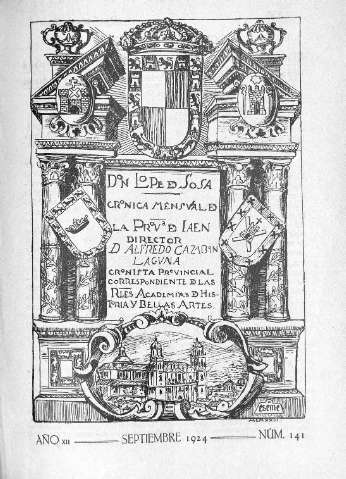 DON LOPE D SOSA
CRONICA MENSVAL D
LA PROVª D JAEN
DIRECTOR
D ALFREDO CAZABAN
LAGUNA
CRONISTA PROVINCIAL
CORRESPONDIENTE D LAS
RLES ACADEMIAS D HIS-
TORIA Y BELLAS ARTES.
AÑO XII SEPTIEMBRE 1924 NÚM. 141